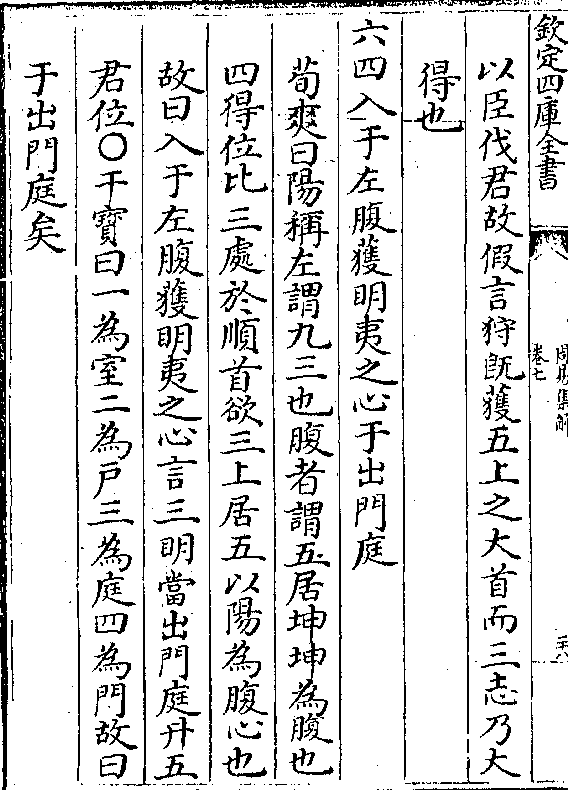 欽定四庫全書
周易集解
卷七
以臣伐君故假言狩既獲五上之大首而三志乃大
得也
六四入于左腹獲明夷之心于出門庭
荀爽曰陽稱左謂九三也腹者謂五居坤坤為腹也
四得位比三處於順首欲三上居五以陽為腹心也
故曰入于左腹獲明夷之心言三明當出門庭升五
君位〇干寶曰一為室二為戶三為庭四為門故曰
于出門庭矣